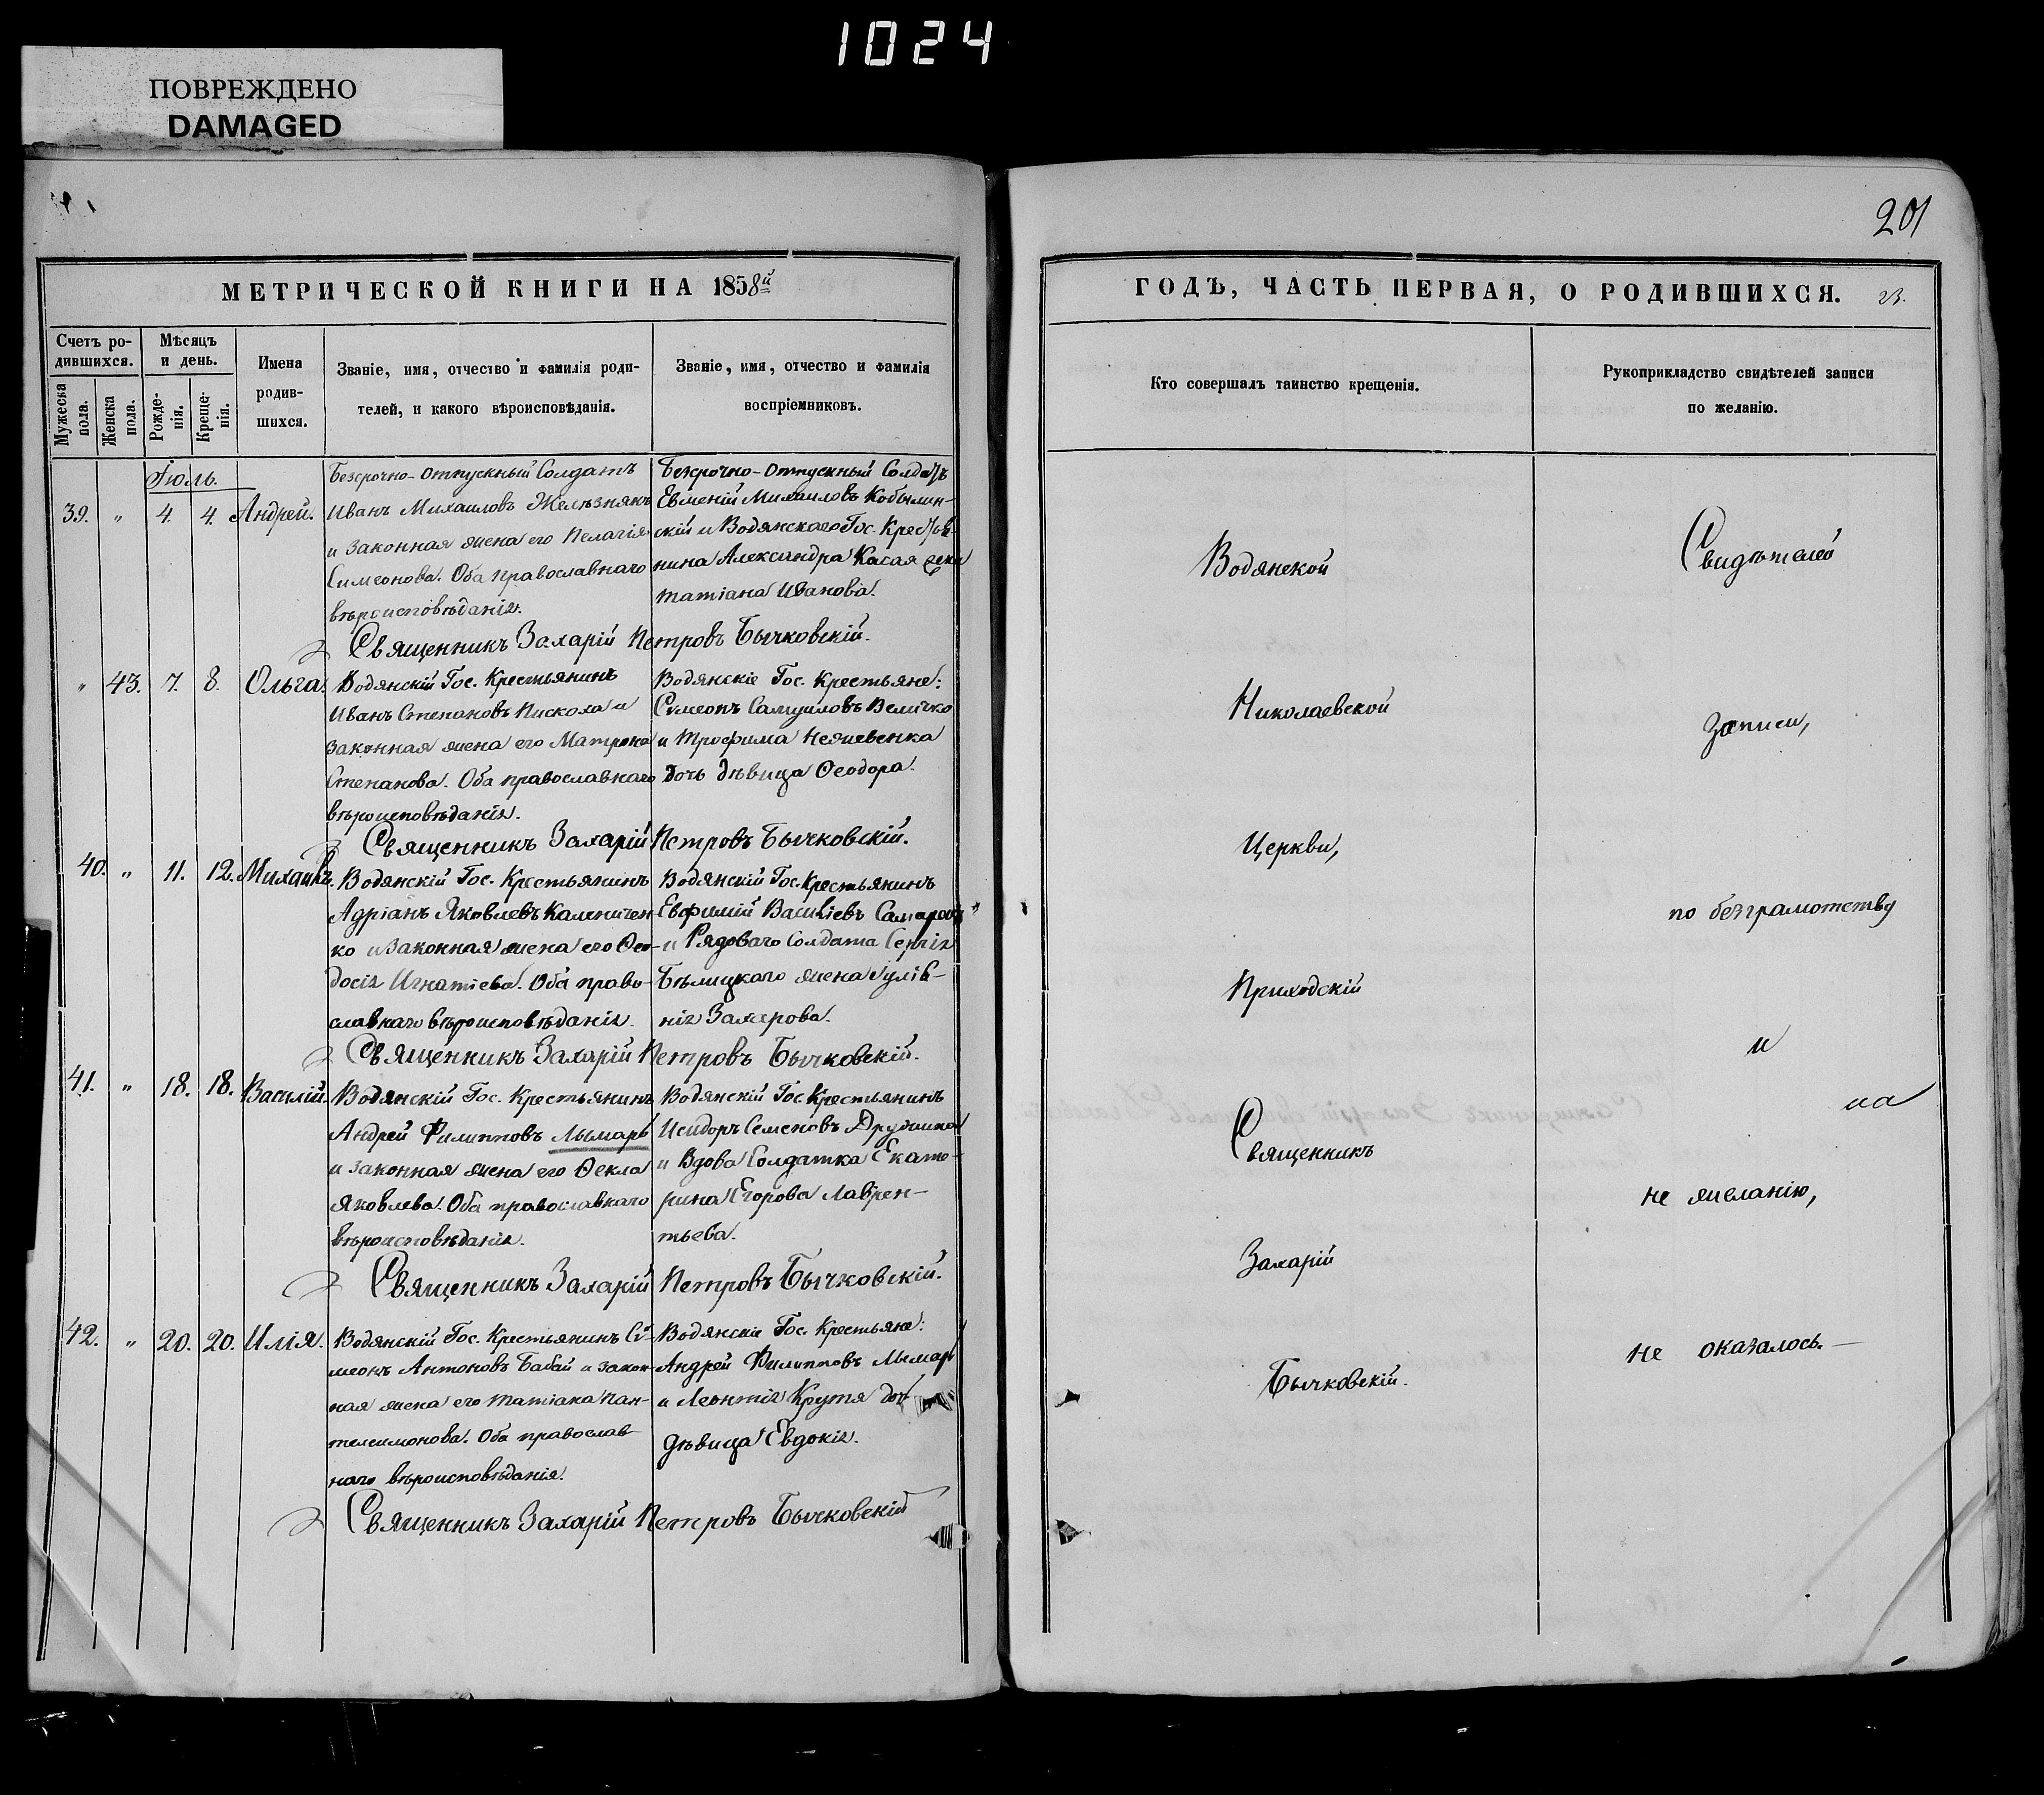 1024
ПОВРЕЖДЕНО
DAMAGED
201
МЕТРИЧЕСКОЙ КНИГИ НА 1858й
Счетъ ро-
дившихся.
Мѣсяцъ
и день.
Мужеска
пола.
Женска
пола.
Рожде-
нія.
Креще-
нія.
Имена
родив-
шихся.
Званіе, имя, отчество и фамилія роди-
телей, и какого вѣроисповѣданія.
Званіе, имя, отчество и фамилія
воспріемниковъ.
Іюль.
39. „ 4. 4. Андрей.
Безсрочно-отпускный Солдатъ
Иванъ Михаиловъ Желѣзнякъ
и законная жена его Пелагія
Симеонова. Оба православнаго
вѣроисповѣданія.
Безсрочно-отпускный Солдатъ
Евменій Михаиловъ Кобылин-
скій и Водянскаго Гос. Крестья-
нина Александра Касая
татіана Иванова.
Священникъ Захарій Петровъ Бычковскій.
„ 43. 7. 8. Ольга.
Водянскій Гос. Крестьянинъ
Иванъ Степановъ Пискоха и
законная жена его Матрона
Степанова. Оба православнаго
вѣроисповѣданія.
Водянскіе Гос. Крестьяне:
Симеонъ Самуиловъ Величко
и Трофима
дочь дѣвица Ѳеодора.
Священникъ Захарій Петровъ Бычковскій.
40. „ 11. 12. Михаилъ.
Водянскій Гос. Крестьянинъ
Адріанъ Яковлевъ Каленичен-
ко и законная жена его Ѳео-
досія Игнатіева. Оба право-
славнаго вѣроисповѣданія.
Водянскій Гос. Крестьянинъ
Евфимій Василіевъ
и Рядоваго Солдата Сергія
Бѣлицкаго жена Іулiа-
нія Захарова.
Священникъ Захарій Петровъ Бычковскій.
41. „ 18. 18. Василій.
Водянскій Гос. Крестьянинъ
Андрей Филипповъ Лымарь
и законная жена его Ѳекла
Яковлева. Оба православнаго
вѣроисповѣданія.
Водянскій Гос. Крестьянинъ
Исидоръ Семеновъ
и Вдова Солдатка Екате-
рина Егорова Лаврен-
тьева.
Священникъ Захарій Петровъ Бычковскій.
42. „ 20. 20. Илія.
Водянскій Гос. Крестьянинъ Си-
меонъ Антоновъ Бабай и закон-
ная жена его Татіана Пан-
телеимонова. Оба православ-
наго вѣроисповѣданія.
Водянскіе Гос. Крестьяне:
Андрей Филипповъ Лымарь
и Леонтія Крутя дочь
дѣвица Евдокія.
Священникъ Захарій Петровъ Бычковскій
ГОДЪ, ЧАСТЬ ПЕРВАЯ, О РОДИВШИХСЯ.
Кто совершалъ таинство крещенія.
Рукоприкладство свидѣтелей записи
по желанію.
Водянской
Николаевской
Церкви,
Приходскій
Священникъ
Захарій
Бычковскій.
Свидѣтелей
записи,
по безграмотству
и
на
не желанію,
не оказалось.—